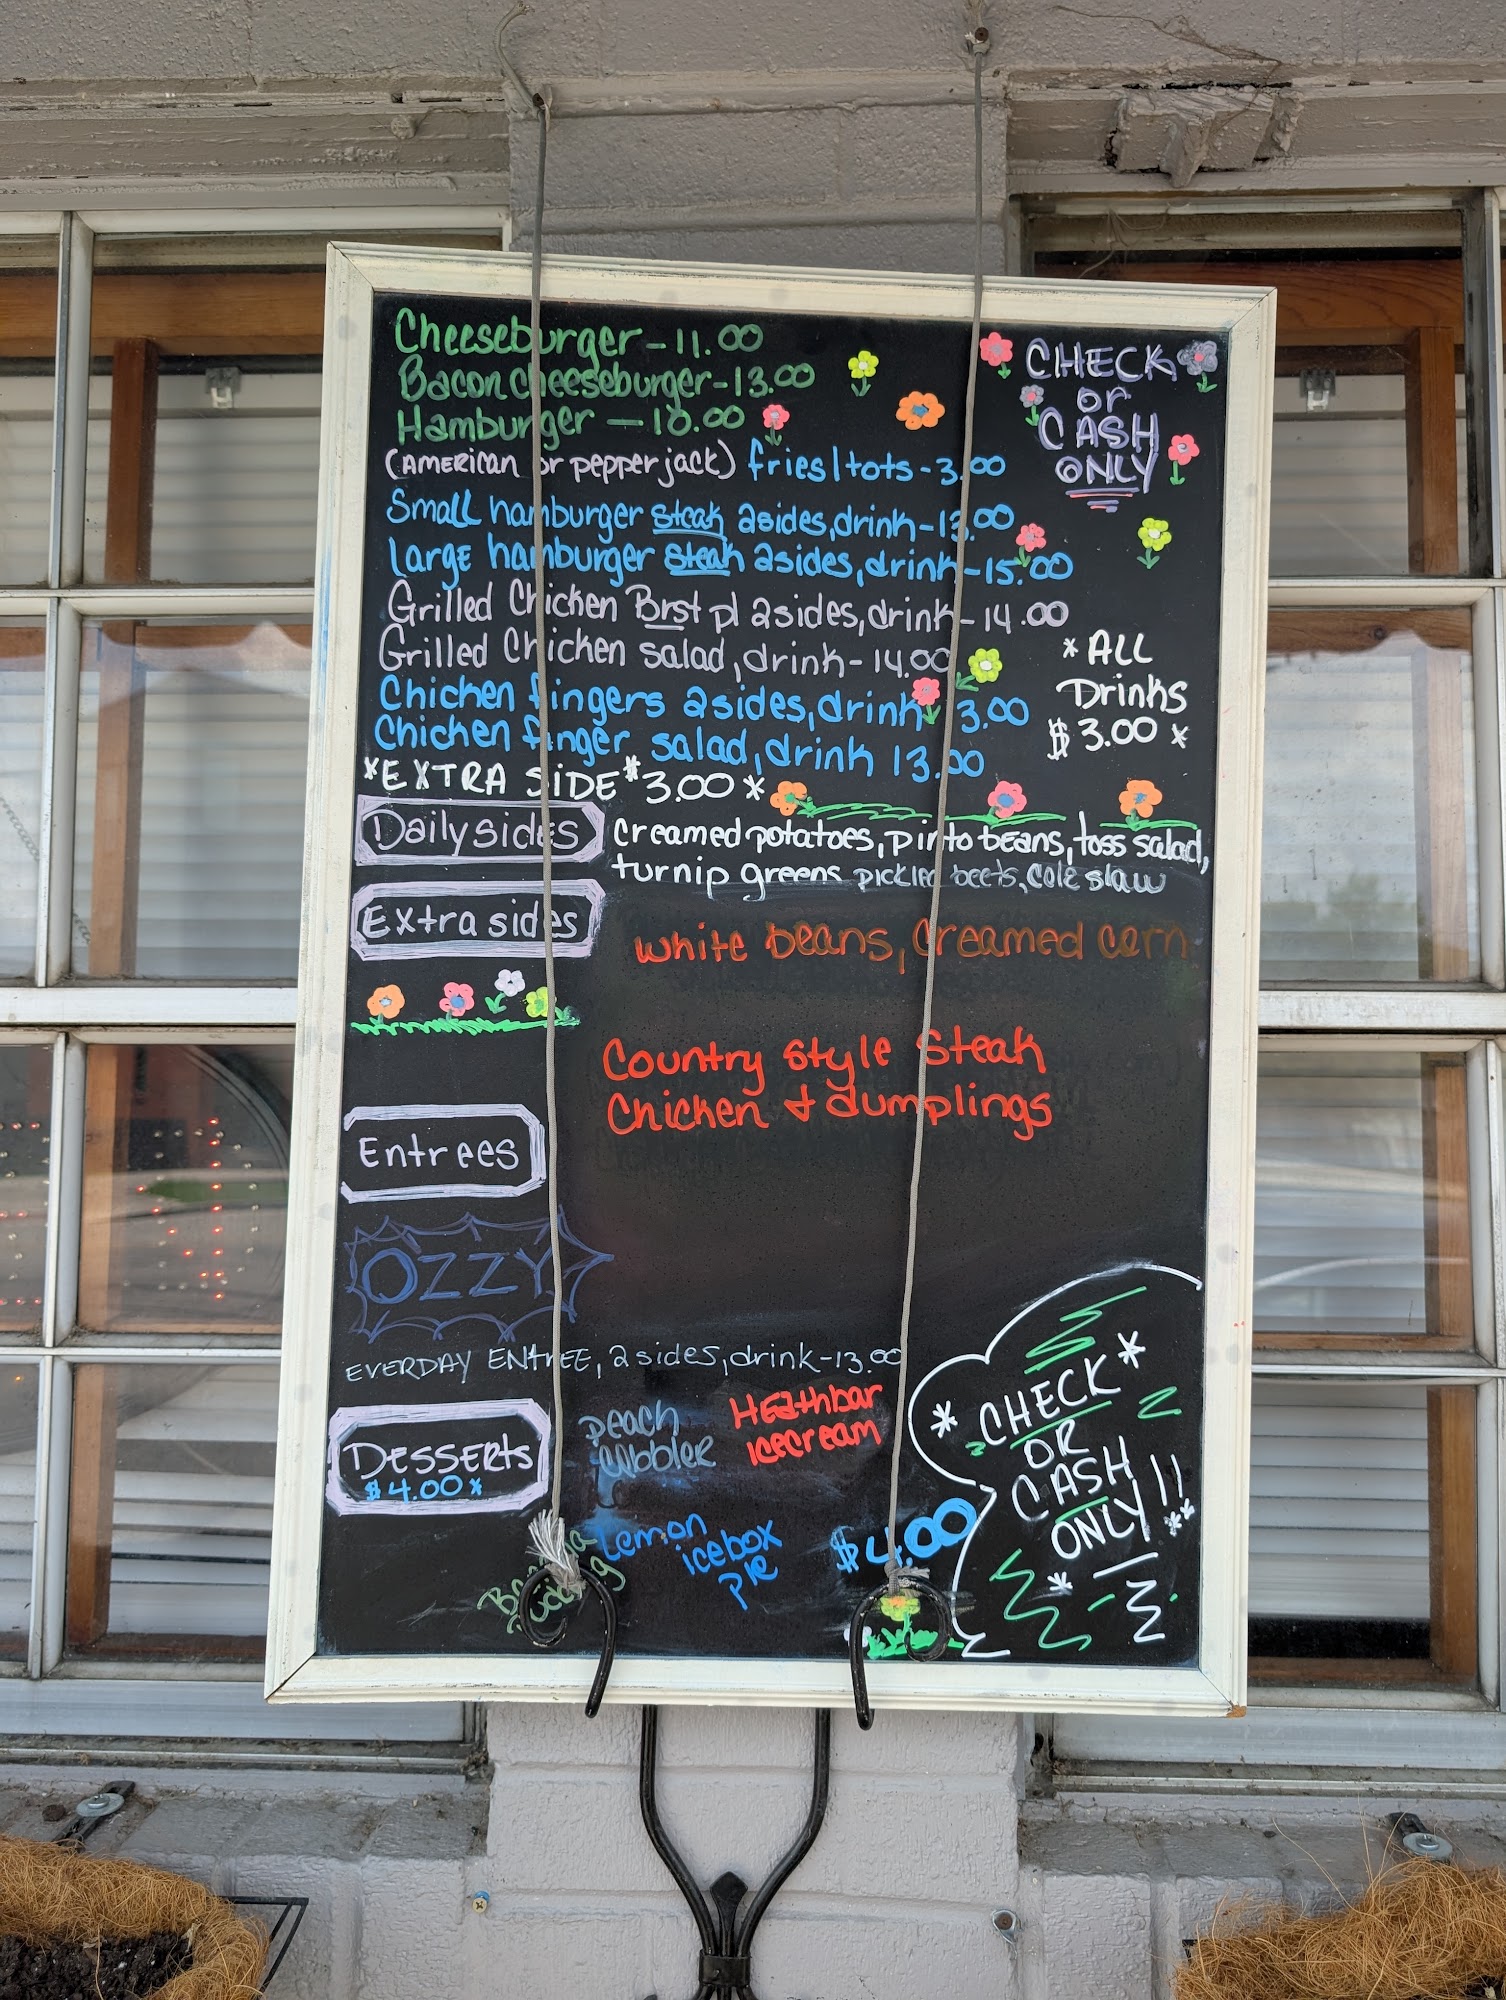 Cheeseburger - 11.00
Bacon cheeseburger - 13.00
Hamburger — 10.00
(AMERICAN or pepper jack) fries/tots - 3.00
CHECK
or
CASH
ONLY
Small hamburger steak 2 sides, drink - 13.00
Large hamburger steak 2 sides, drink - 15.00
Grilled Chicken Brst pl 2 sides, drink - 14.00
Grilled Chicken salad, drink - 14.00
Chicken fingers 2 sides, drink 13.00
Chicken finger salad, drink 13.00
*ALL
Drinks
$3.00*
*EXTRA SIDE $3.00*
Daily sides
creamed potatoes, pinto beans, toss salad,
turnip greens pickled beets, cole slaw
Extra sides
white beans, creamed corn
Country Style Steak
Chicken & dumplings
Entrees
OZZY
EVERDAY ENTREE, 2 sides, drink - 13.00
DESSERTS
$4.00*
peach
cobbler
HEathbar
icecream
Banana
Pudding
Lemon
icebox
pie
$4.00
*CHECK*
OR
CASH
ONLY!!